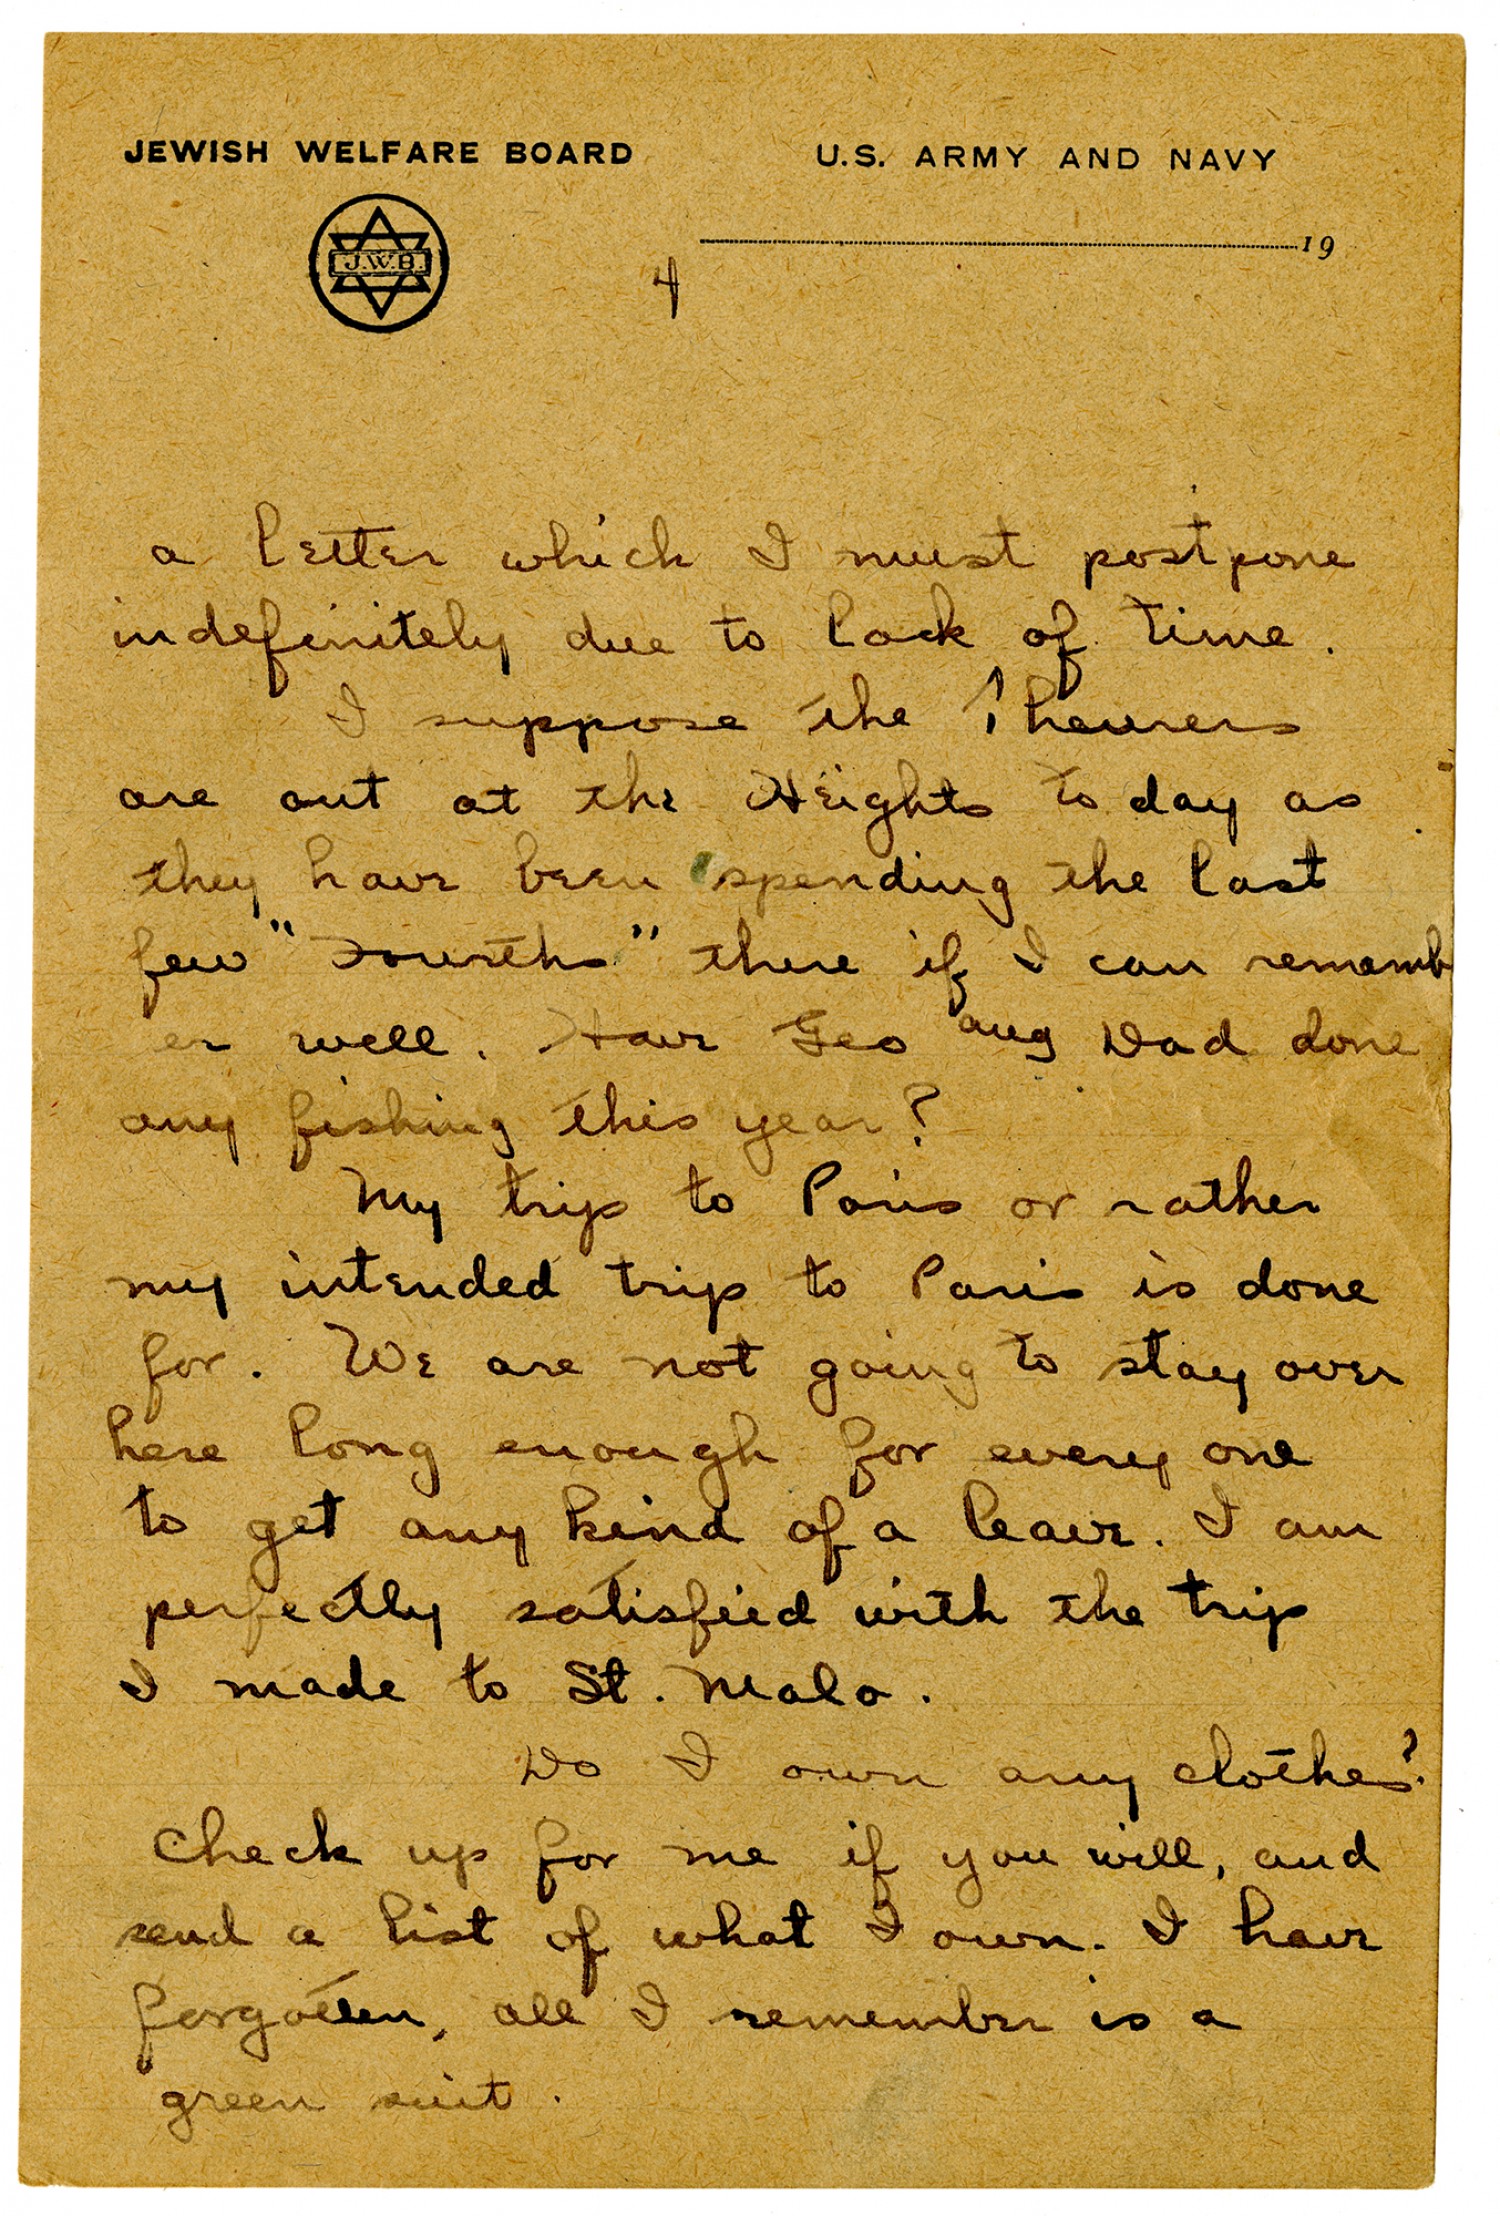 JEWISH WELFARE BOARD U.S. ARMY AND NAVY
19
J.W.B.
4
a letter which I must postpone
indefinitely due to lack of time.
I suppose the Theurers
are out at the Heights to day as
they have been spending the last
few "Fourths" there if I can rememb
er well. Have Geo aug Dad done
any fishing this year?
My trip to Paris or rather
my intended trip to Paris is done
for. We are not going to stay over
here long enough for every one
to get any kind of a leave. I am
perfectly satisfied with the trip
I made to St. Malo.
Do I own any clothes?
Check up for me if you will, and
send a list of what I own. I have
forgotten, all I remember is a
green suit.